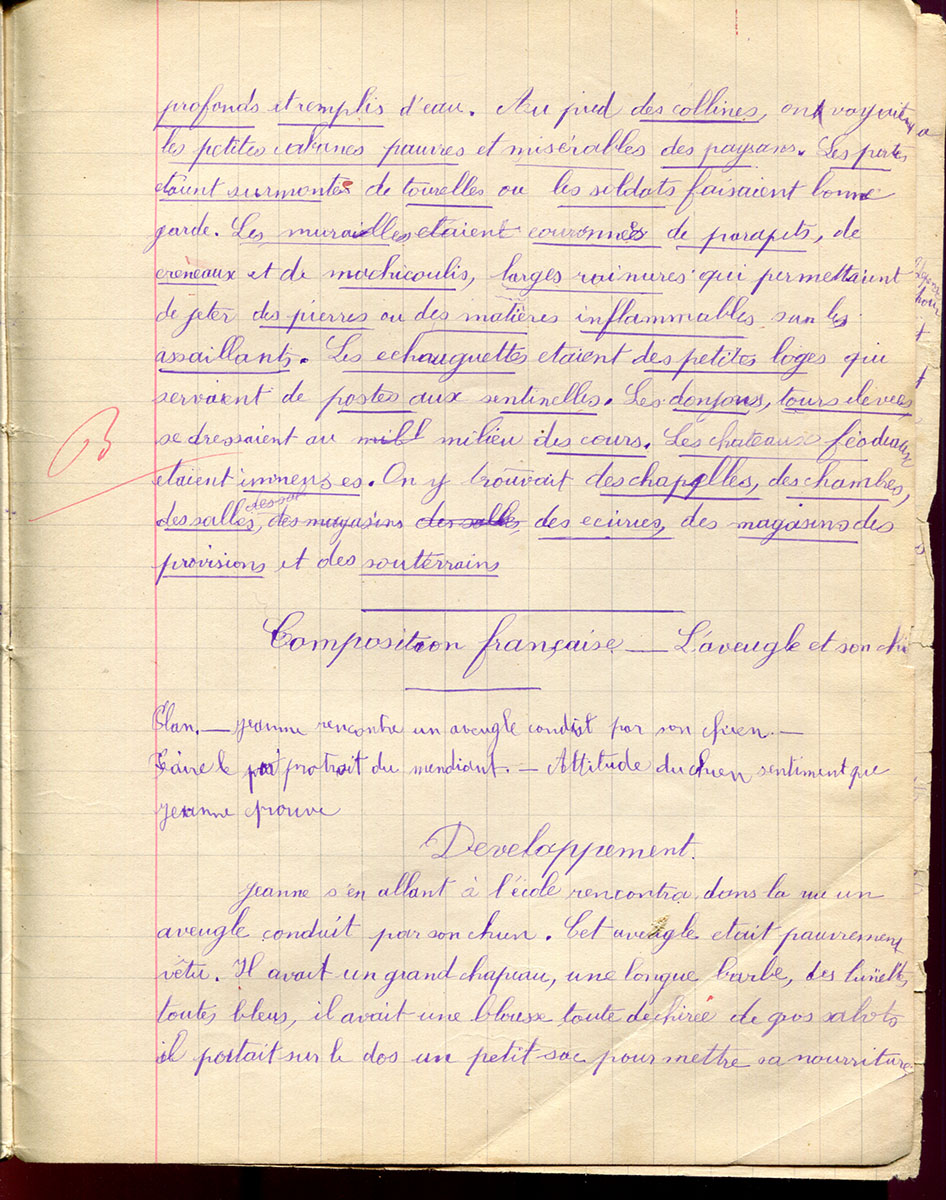 profonds et remplis d'eau. Au pied des collines, on voyait
les petites cabanes pauvres et misérables des paysans. Les portes
étaient surmontés de tourelles ou les soldats faisaient bonne
garde. Les murailles etaient couronnées de parapets, de
creneaux et de machicoulis, larges rainures qui permettaient
de jeter des pierres ou des matières inflammables sur les
assaillants. Les echauguettes etaient des petites loges qui
servaient de postes aux sentinelles. Les donjons, tours elevées
se dressaient au milieu des cours. Les chateaux féodaux
B
etaient immenses. On y trouvait des chapelles, des chambres,
des salles, des magasins des salles, des ecuries, des magasins des
provisions et des souterrains
Composition française — L'aveugle et son chi
Plan. — Jeanne rencontre un aveugle conduit par son chien. —
Faire le protrait du mendiant. — Attitude du chien sentiment que
Jeanne eprouve
Developpement.
Jeanne s'en allant à l'école rencontra dans la rue un
aveugle conduit par son chien. Cet aveugle etait pauvrement
vêtu. Il avait un grand chapeau, une longue barbe, des lunettes
toutes bleus, il avait une blouse toute dechirée de gros sabots
il portait sur le dos un petit sac pour mettre sa nourriture